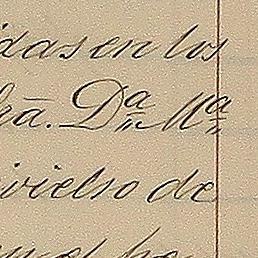 idas en los
ha. D.ª M.ª
ivielso de